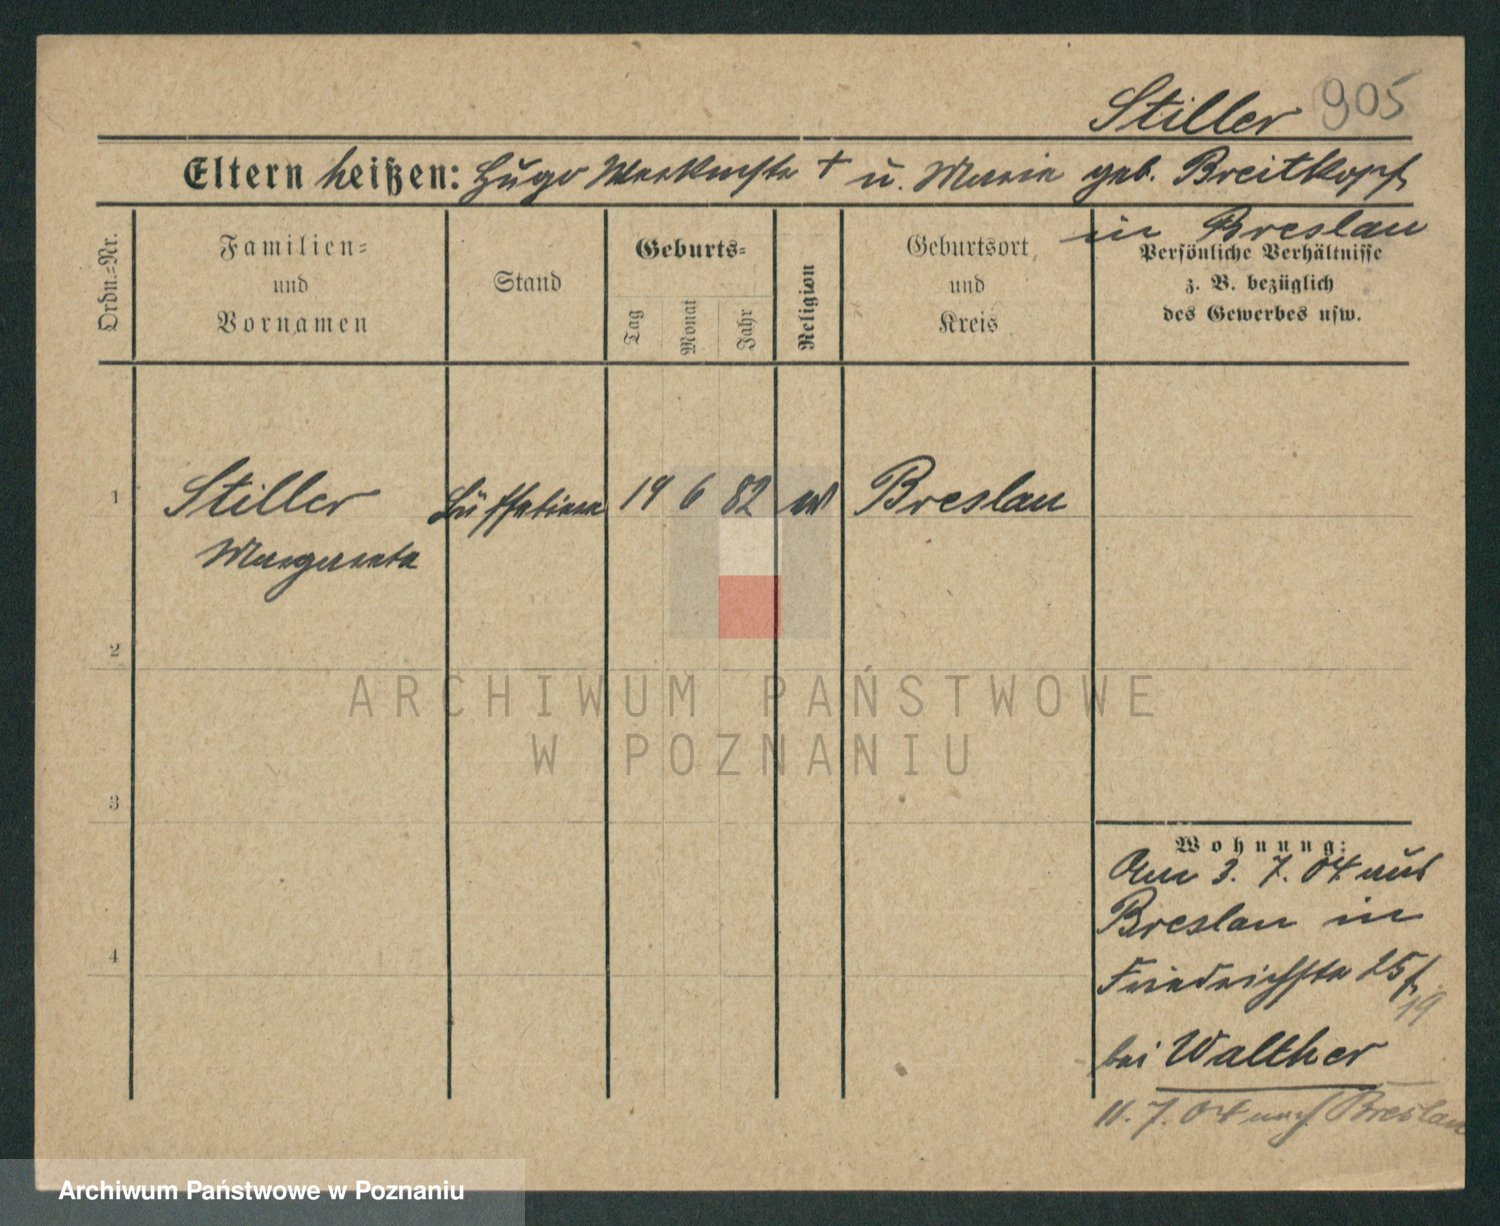 Stiller 905
Eltern heißen: Hugo † u. Maria geb. Breitkopf
in Breslau
Ordn.=Nr.
Familien=
und
Vornamen
Stand
Geburts=
Tag
Monat
Jahr
Religion
Geburtsort
und
Kreis
Persönliche Verhältnisse
z. B. bezüglich
des Gewerbes usw.
1 Stiller 19 6 82 Breslau
Margareta
2
3
4
ARCHIWUM PAŃSTWOWE
W POZNANIU
Wohnung:
Am 3. 7. 04 aus
Breslau in
Friedrichstr 25
19
bei Walther
11. 7. 04 nach Breslau
Archiwum Państwowe w Poznaniu